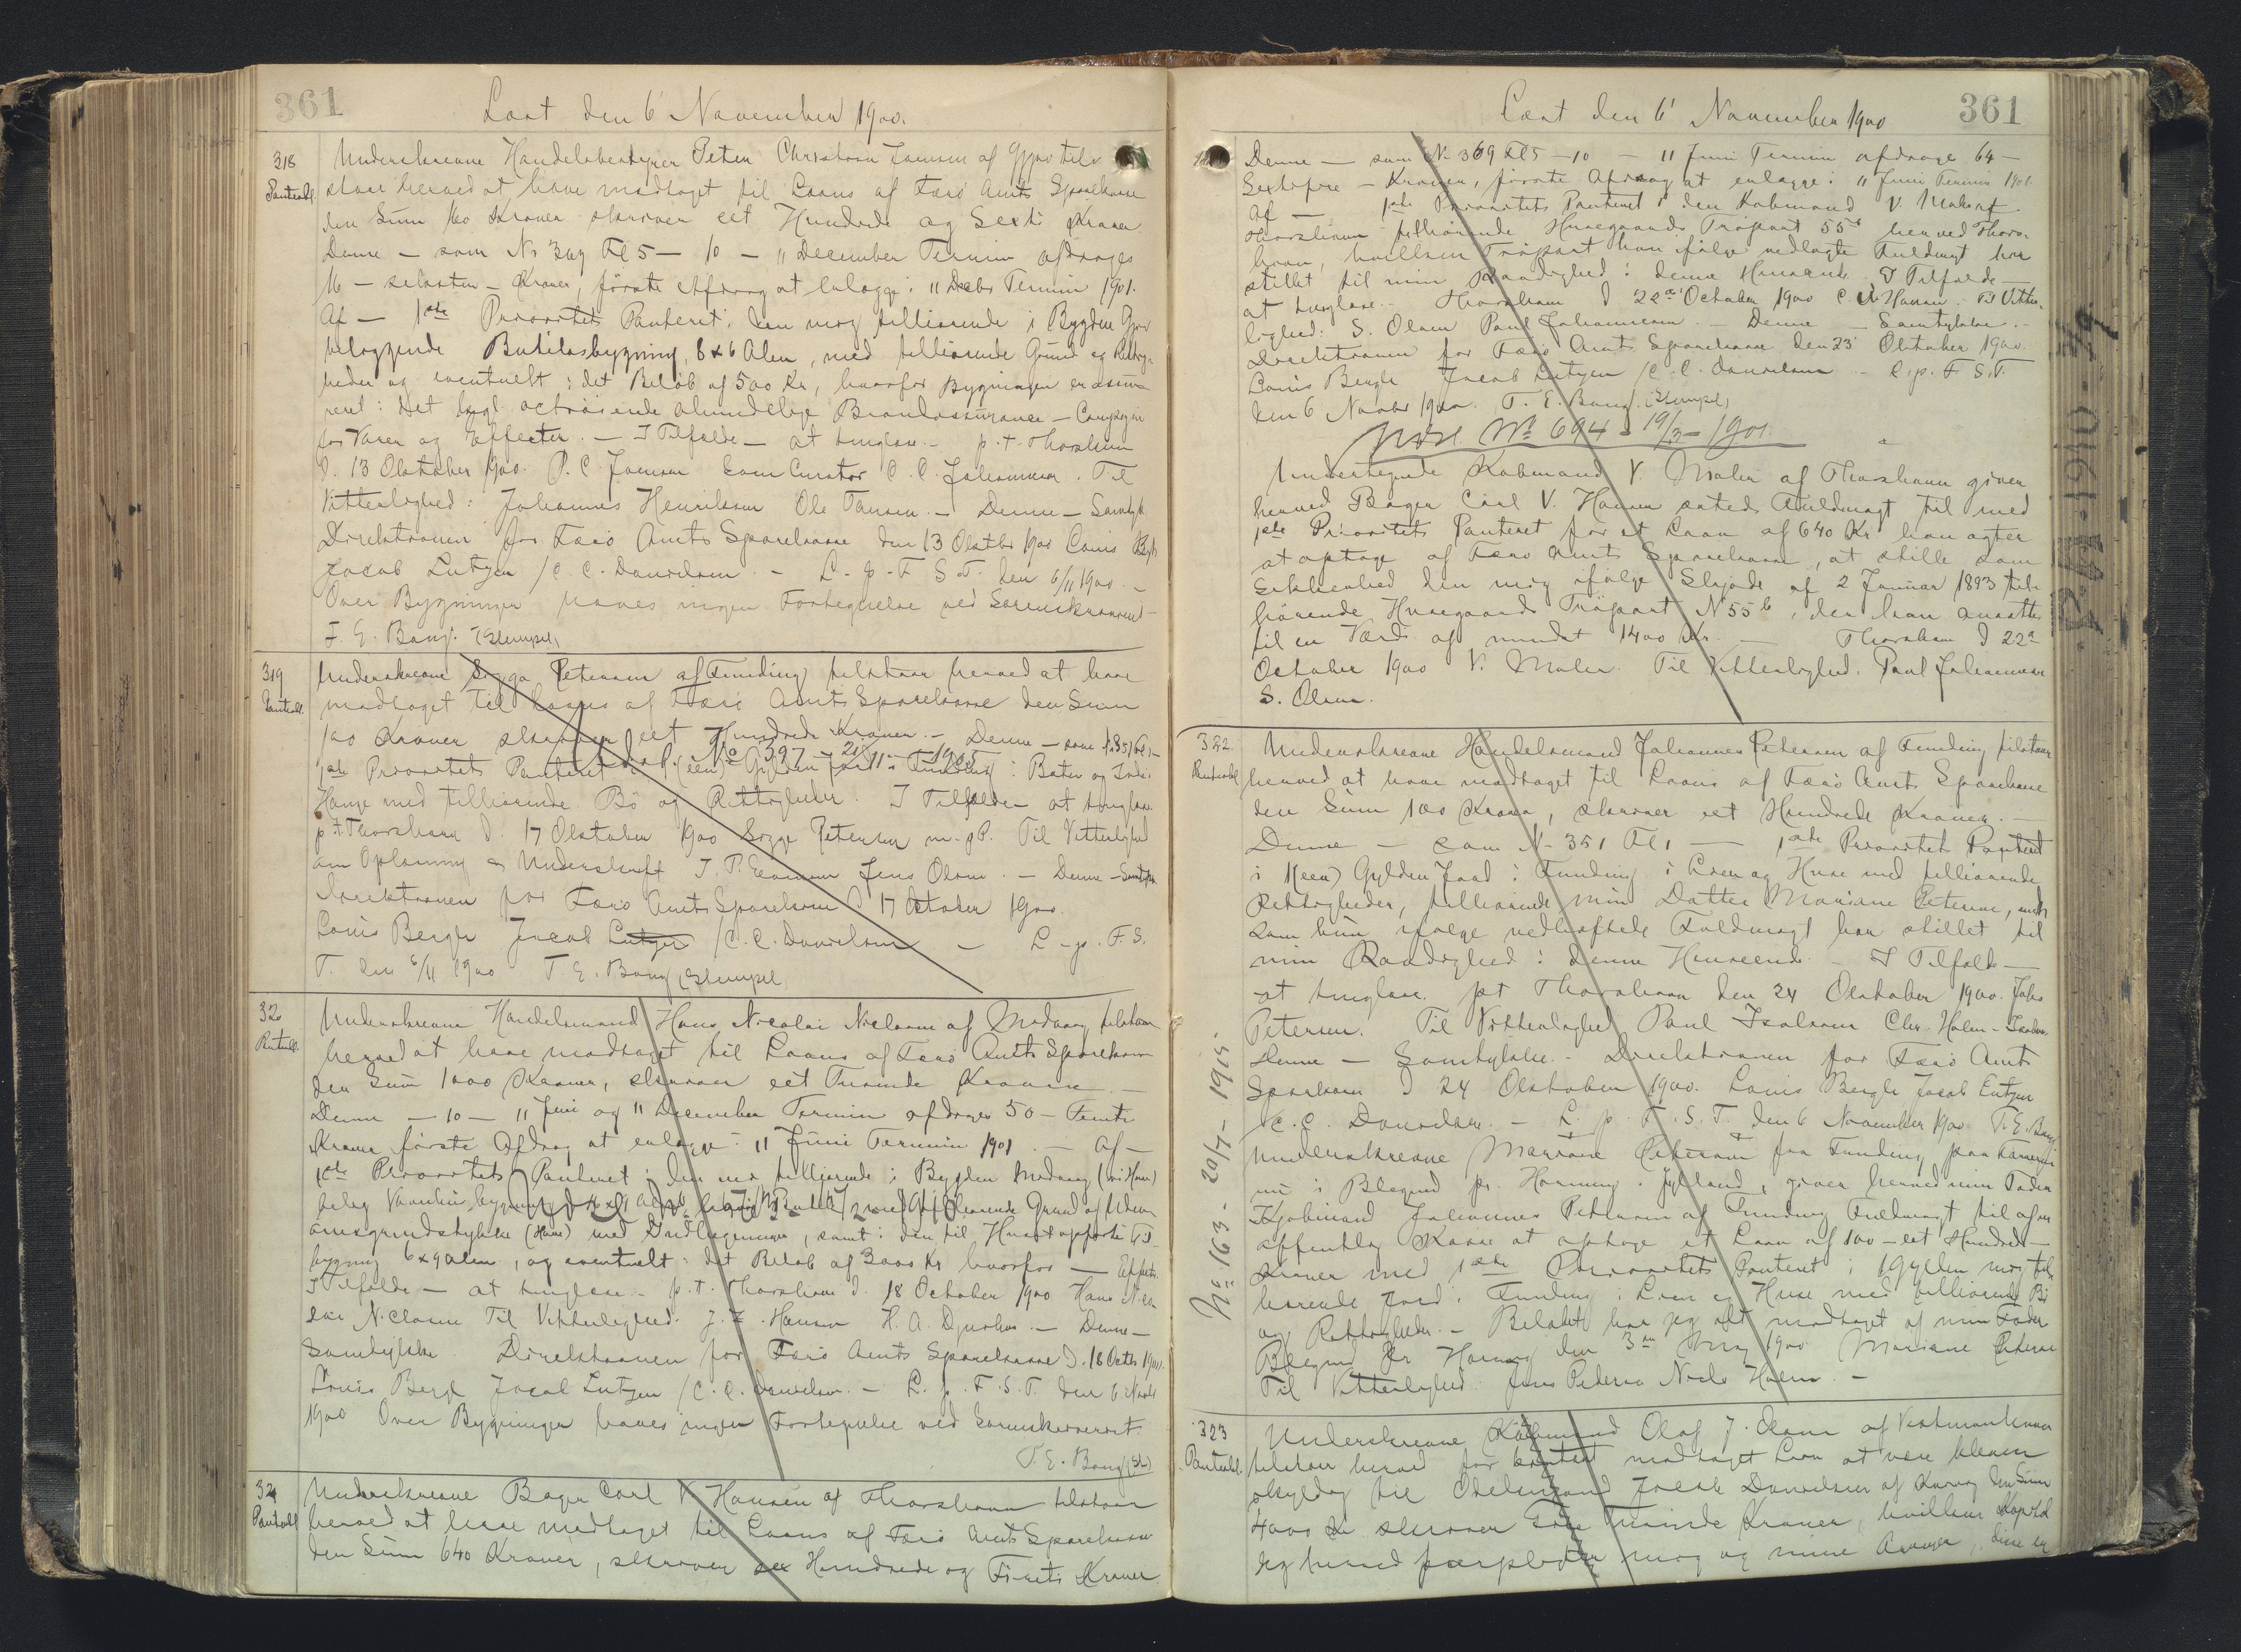 361
Læst den 6 November 1900.
318
Panteobl.
Underskrevne Handelsbestyrer Peter Christian Joensen af Gjov tilstaar
herved at have modtaget til Laans af Færø Amts Sparekasse
den Sum 160 Kroner skriver eet Hundrede og Sexti Kroner
Denne – som No 369 Fl 5 – 10 – 11 December Termin afdrages
16 – seksten – Kroner, første Afdrag at erlægge i 11 Decbr Termin 1901.
Af – 1ste Prioritets Panteret i den mig tilhørende i Bygden Gjov
beliggende Butiksbygning, 8 x 6 Alen, med tilhørende Grund og Rettig-
heder og eventuelt i det Beløb af 500 Kr, hvorfor Bygningen er assu-
reret i det kgl. octroierede almindelige Brandassurance – Compagni
for Varer og Effecter. – I Tilfælde – at tinglæse – p. t. Thorshavn
d. 13 Oktober 1900. P. C. Joensen som Curator C. C. Johannesen. Til
Vitterlighed: Johannes Henriksen Ole Hansen. – Denne – Samtyk.
Direktionen for Færø Amts Sparekasse den 13 Oktbr 1900 Louis Bergh
Jacob Lutzen / C. C. Danielsen. – L. p. F. S. T. den 6/11 1900. –
Over Bygningen haves ingen Fortegnelse ved Sorenskriveriet –
T. E. Bang. (Stempel)
319
Panteobl.
Underskrevne Sigga Petersen af Funding tilstaar herved at have
modtaget til Laans af Færø Amts Sparekasse den Sum
100 Kroner skriver eet Hundrede Kroner. – Denne – som No 351 Fl 1 –
No 397 – 21/11 – 1905
1ste Prioritets Panteret i 1 (een) Gylden Jord i Funding i Bøter og Inde i
Hauge med tilhørende Bø og Rettigheder. I Tilfælde – at tinglæse.
p. t. Thorshavn d. 17 Oktober 1900 Sigga Petersen m. f. P. Til Vitterlighed
om Oplæsning og Underskrift J. P. Joensen Jens Olsen. – Denne – Samtykke
Direktionen for Færø Amts Sparekasse d 17 Oktober 1900.
Louis Bergh Jacob Lutzen / C. C. Danielsen – L. p. F. S.
T. den 6/11 1900 T. E. Bang (Stempel)
320
Panteobl.
Underskrevne Handelsmand Hans Nicolai Niclasen af Midvaag tilstaar
herved at have modtaget til Laans af Færø Amts Sparekasse
den Sum 1000 Kroner, skriver eet Tusinde Kroner –
Denne – 10 – 11 Juni og 11 December Termin afdrages 50 – Femti
Kroner første Afdrag at erlægge i 11 Juni Termin 1901 – Af –
1ste Prioritets Panteret i den mig tilhørende i Bygden Midvaag
bygning 6 x 9 Alen, og eventuelt i det Beløb af 3000 Kr hvorfor – Effects.
I Tilfælde – at tinglæse – p. t. Thorshavn d. 18 October 1900 Hans Nico-
lai Niclasen Til Vitterlighed. J. F. Hansen H. A. Djurhuus. – Denne –
Samtykke. Direktionen for Færø Amts Sparekasse d. 18 Octbr 1900.
Louis Bergh Jacob Lutzen / C. C. Danielsen. – L. p. F. S. T. den 6 Novbr
1900 Over Bygningen haves ingen Fortegnelse ved Sorenskriveriet
T. E. Bang (St)
321
Panteobl
Underskrevne Bager Carl V Hansen af Thorshavn tilstaar
herved at have modtaget til Laans af Færø Amts Sparekasse
den Sum 640 Kroner, skriver sex Hundrede og Fireti Kroner
361
Læst den 6 November 1900
Denne – som No 369 Fl 5 – 10 – 11 Juni Termin afdrage 64 –
Sextifire – Kroner, første Afdrag at erlægge i 11 Juni Termin 1901.
Af – 1ste Prioritets Panteret i den Købmand V. Maler af
Thorshavn tilhørende Husegaards Tröpart 55b her ved Thors-
havn, hvilken Tröpart han ifølge vedlagte Fuldmagt har
stillet til min Raadighed i denne Henseende. I Tilfælde –
at tinglæse – Thorshavn d 22de October 1900 C. V. Hansen. Til Vitter-
lighed: S. Olsen Paul Johannesen. – Denne – Samtykke. –
Direktionen for Færø Amts Sparekasse den 23 Oktober 1900.
Louis Bergh Jacob Lutzen / C. C. Danielsen – L. p. F. S. T.
den 6 Novbr 1900. T. E. Bang. (Stempel)
No 694 – 19/3 – 1901.
Undertegnede Købmand V. Maler af Thorshavn giver
herved Bager Carl V. Hansen sateds Fuldmagt til med
1ste Prioritets Panteret for et Laan af 640 Kr han agter
at optage af Færø Amts Sparekasse, at stille som
Sikkerhed den mig ifølge Skjøde af 2 Januar 1893 til-
hørende Husegaards Tröpart N 55b, der han ansattes
til en Værdi af mindst 1400 Kr. – Thorshavn d 22de
October 1900 V. Maler. Til Vitterlighed: Paul Johannesen
S. Olsen.
322.
Panteobl
Underskrevne Handelsmand Johannes Petersen af Funding tilstaar
herved at have modtaget til Laans af Færø Amts Sparekasse
den Sum 100 Kroner, skriver eet Hundrede Kroner. –
Denne – som No 351 Fl 1 – 1ste Prioritets Panteret
i 1 (een) Gylden Jord i Funding i Lien og Huse med tilhørende
Rettigheder, tilhørende min Datter Mariane Petersen,
som hun ifølge vedhæftede Fuldmagt har stillet til
min Raadighed i denne Henseende – I Tilfælde –
at tinglæse. pt Thorshavn den 24 Oktober 1900. Johs
Petersen. Til Vitterlighed Paul Isaksen Chr. Holm-Isaksen
Denne – Samtykke. – Direktionen for Færø Amts
Sparekasse d 24 Oktober 1900. Louis Bergh Jacob Lutzen
/ C. C. Danielsen. – L. p. F. S. T. den 6 November 1900 T. E. Bang
Underskrevne Mariane Petersen fra Funding paa Færøerne
nu i Blegind pr. Hørning i Jylland, giver herved min Fader
Kjøbmand Johannes Petersen af Funding Fuldmagt til af en
offentlig Kasse at optage et Laan af 100 – eet Hundrede –
Kroner med 1ste Prioritets Panteret i 1 Gylden mig til-
hørende Jord i Funding i Lien og Huse med tilhørende Bø
og Rettigheder. – Beløbet har jeg alt modtaget af min Fader
Blegind Pr Hørning den 3de May 1900 Mariane Petersen
Til Vitterlighed. Jens Pedersen Niels Holm. –
No 163 – 20/7 – 1915
323
Panteobl.
Underskrevne Købmand Olaf J. Olsen af Vestmanhavn
tilstaar herved for kontant modtaget Laan at være bleven
skyldig til Odelsmand Jacob Danielsen af Kvivig den Sum
4000 Kr skriver Fire Tusinde Kroner, hvilken Kapital
jeg herved forpligter mig og mine Arvinger,